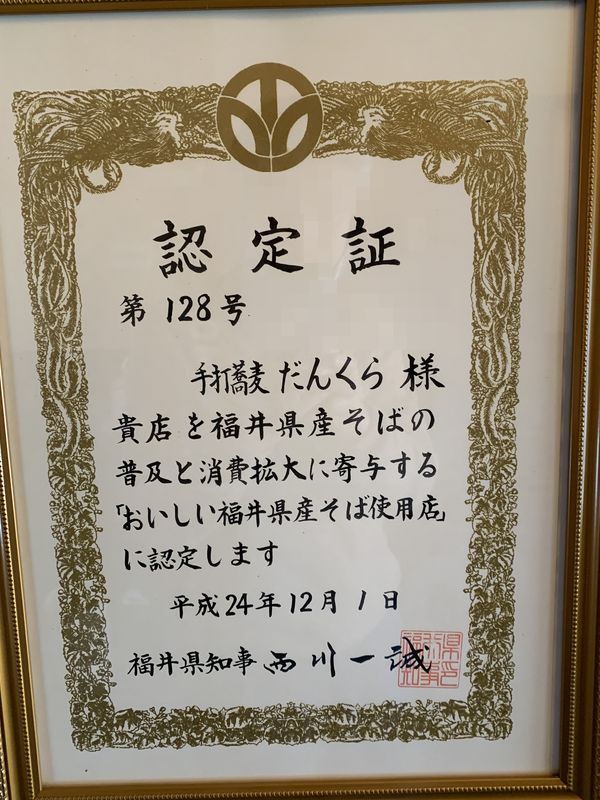 認定証
第128号
手打蕎麦だんくら様
貴店を福井県産そばの
普及と消費拡大に寄与する
「おいしい福井県産そば使用店」
に認定します
平成24年12月1日
福井県知事 西川一誠